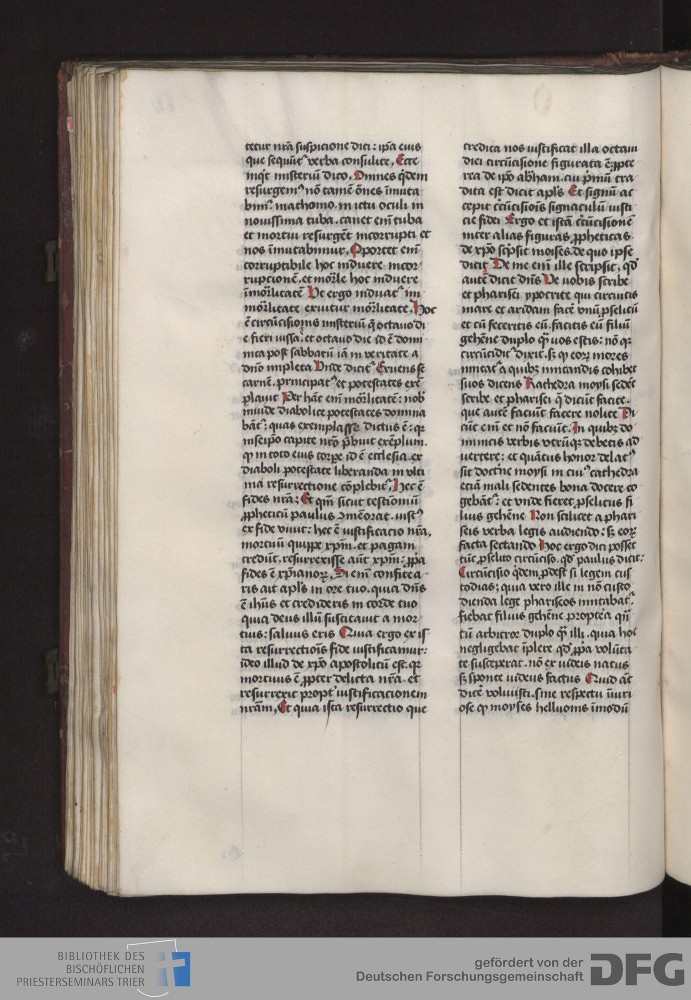 tetur nr̄a suspicione dici : ip̄a eius
que sequūt᷑ verba consulite, Ecce
inqt misteriū dico, Omnes qͥdem
resurgemꝰ nō tamē ōnes īmuta
bimꝰ. in athomo. in ictu oculi in
nouissima tuba. canet em̄ tuba
et mortui resurgēt incorrupti et
nos īmutabimur, Oportet em̄
corruptibile hoc induere incor⸗
rupcionē. et mor̄le hoc induere
īmor̄litatē Ut ergo induat᷑ im
mor̄litate exuitur mor̄litate, Hoc
ē circūcisionis misteriū qͦ octauo di
e fieri iussa. et octauo die id ē domi
nica post sabbatū iā in veritate a
dn̄o impleta Unde dicit᷑ Exuens se
carnē. principatꝰ et potestates exē
plauit Per hāc em̄ mor̄litatē: nob̄
inuide diabolice potestates domina
bāt᷑: quas exemplasse dictus ē: qꝛ
in seip̄o capite nr̄o p̄buit exēplum.
qꝫ in toto eius corꝑe id ē ecclesia. ex
diaboli potestate liberanda in vlti
ma resurrectione cōplebit᷑, Hec ē
fides nr̄a: Et qm̄ sicut testīoniū
ꝓpheticū paulus ꝯmēorat. iustꝰ
ex fide viuit: hec ē iustificacio nr̄a,
mortuū quippe xp̄m. et pagani
credūt. resurrexisse aūt xp̄m: ꝓpa
fides ē xp̄ianoꝝ, Si em̄ confitea⸗
ris ait apl̄s in ore tuo. quia dn̄s
ē ihūs et credideris in corde tuo
quia deus illū suscitauit a mor
tuis: saluus eris Quia ergo ex is
ta resurrectionis fide iustificamur:
ideo illud de xp̄o apostolicū est. qꝛ
mortuus ē ꝓpter delicta nr̄a. et
resurrexit propt᷑ iustificacionem
nr̄am, Et quia ista resurrectio que
credita nos iustificat illa octaui
diei circūcisione figurata ē: ꝓpte
rea de ip̄o abh̄am. cui pͥmū tra
dita est dicit apl̄s Et signū ac
cepit cc̄ūcisionis signaculū iusti
cie fidei Ergo et istā cc̄ūcisionē
inter alias figuras ꝓpheticas.
de xp̄o scͥpsit moises. de quo ipse
dicit De me em̄ ille scripsit, qͥd
autē dicit dn̄s Ve uobis scribe
et pharisei ypocrite qui circuitis
mare et aridam facē vnū ꝓselitū
et cū feceritis eū. facitis eū filiū
gehēne duplo qͣ̄ uos estis: nō qꝛ
circūcidit᷑ dixit. sꝫ qꝫ eoꝝ mores
imitat᷑ a quibꝫ imitandis cohibet
suos dicens Kathedra moysi sedēt
scribe et pharisei que dicūt facite.
que autē faciūt facere nolite Di
cūt em̄ et nō faciūt. In quibꝫ do⸗
minicis verbis vtrūqꝫ debetis ad
uertere: et quātus honor delatꝰ
sit doctͥne moysi in cuiꝰ cathedra
eciā mali sedentes bona docere co
gebāt᷑: et vnde fieret ꝓselitus fi
lius gehēne Non scilicet a phari
seis verba legis audiendo: sꝫ eoꝝ
facta sectando Hoc ergo dici posset
tūc ꝓselito circūciso. qͥd paulus dicit:
Circūcisio qͥdem ꝓdest si legem cus
todias: quia vero ille in nō custo
dienda lege phariseos imitabat᷑.
fiebat filius gehēne propterea qͥn
tū arbitror duplo qͣ̄ illi. quia hoc
negligebat īplere qͥd ꝓpa volūta
te susceperat. nō ex iudeis natus
sꝫ sponte iudeus factus Quid aūt
dicē voluisti. sine respectu iniuri
ose qꝫ moyses helluonis īmodū
BIBLIOTHEK DES
BISCHÖFLICHEN
PRIESTERSEMINARS TRIER
gefördert von der
Deutschen Forschungsgemeinschaft
DFG